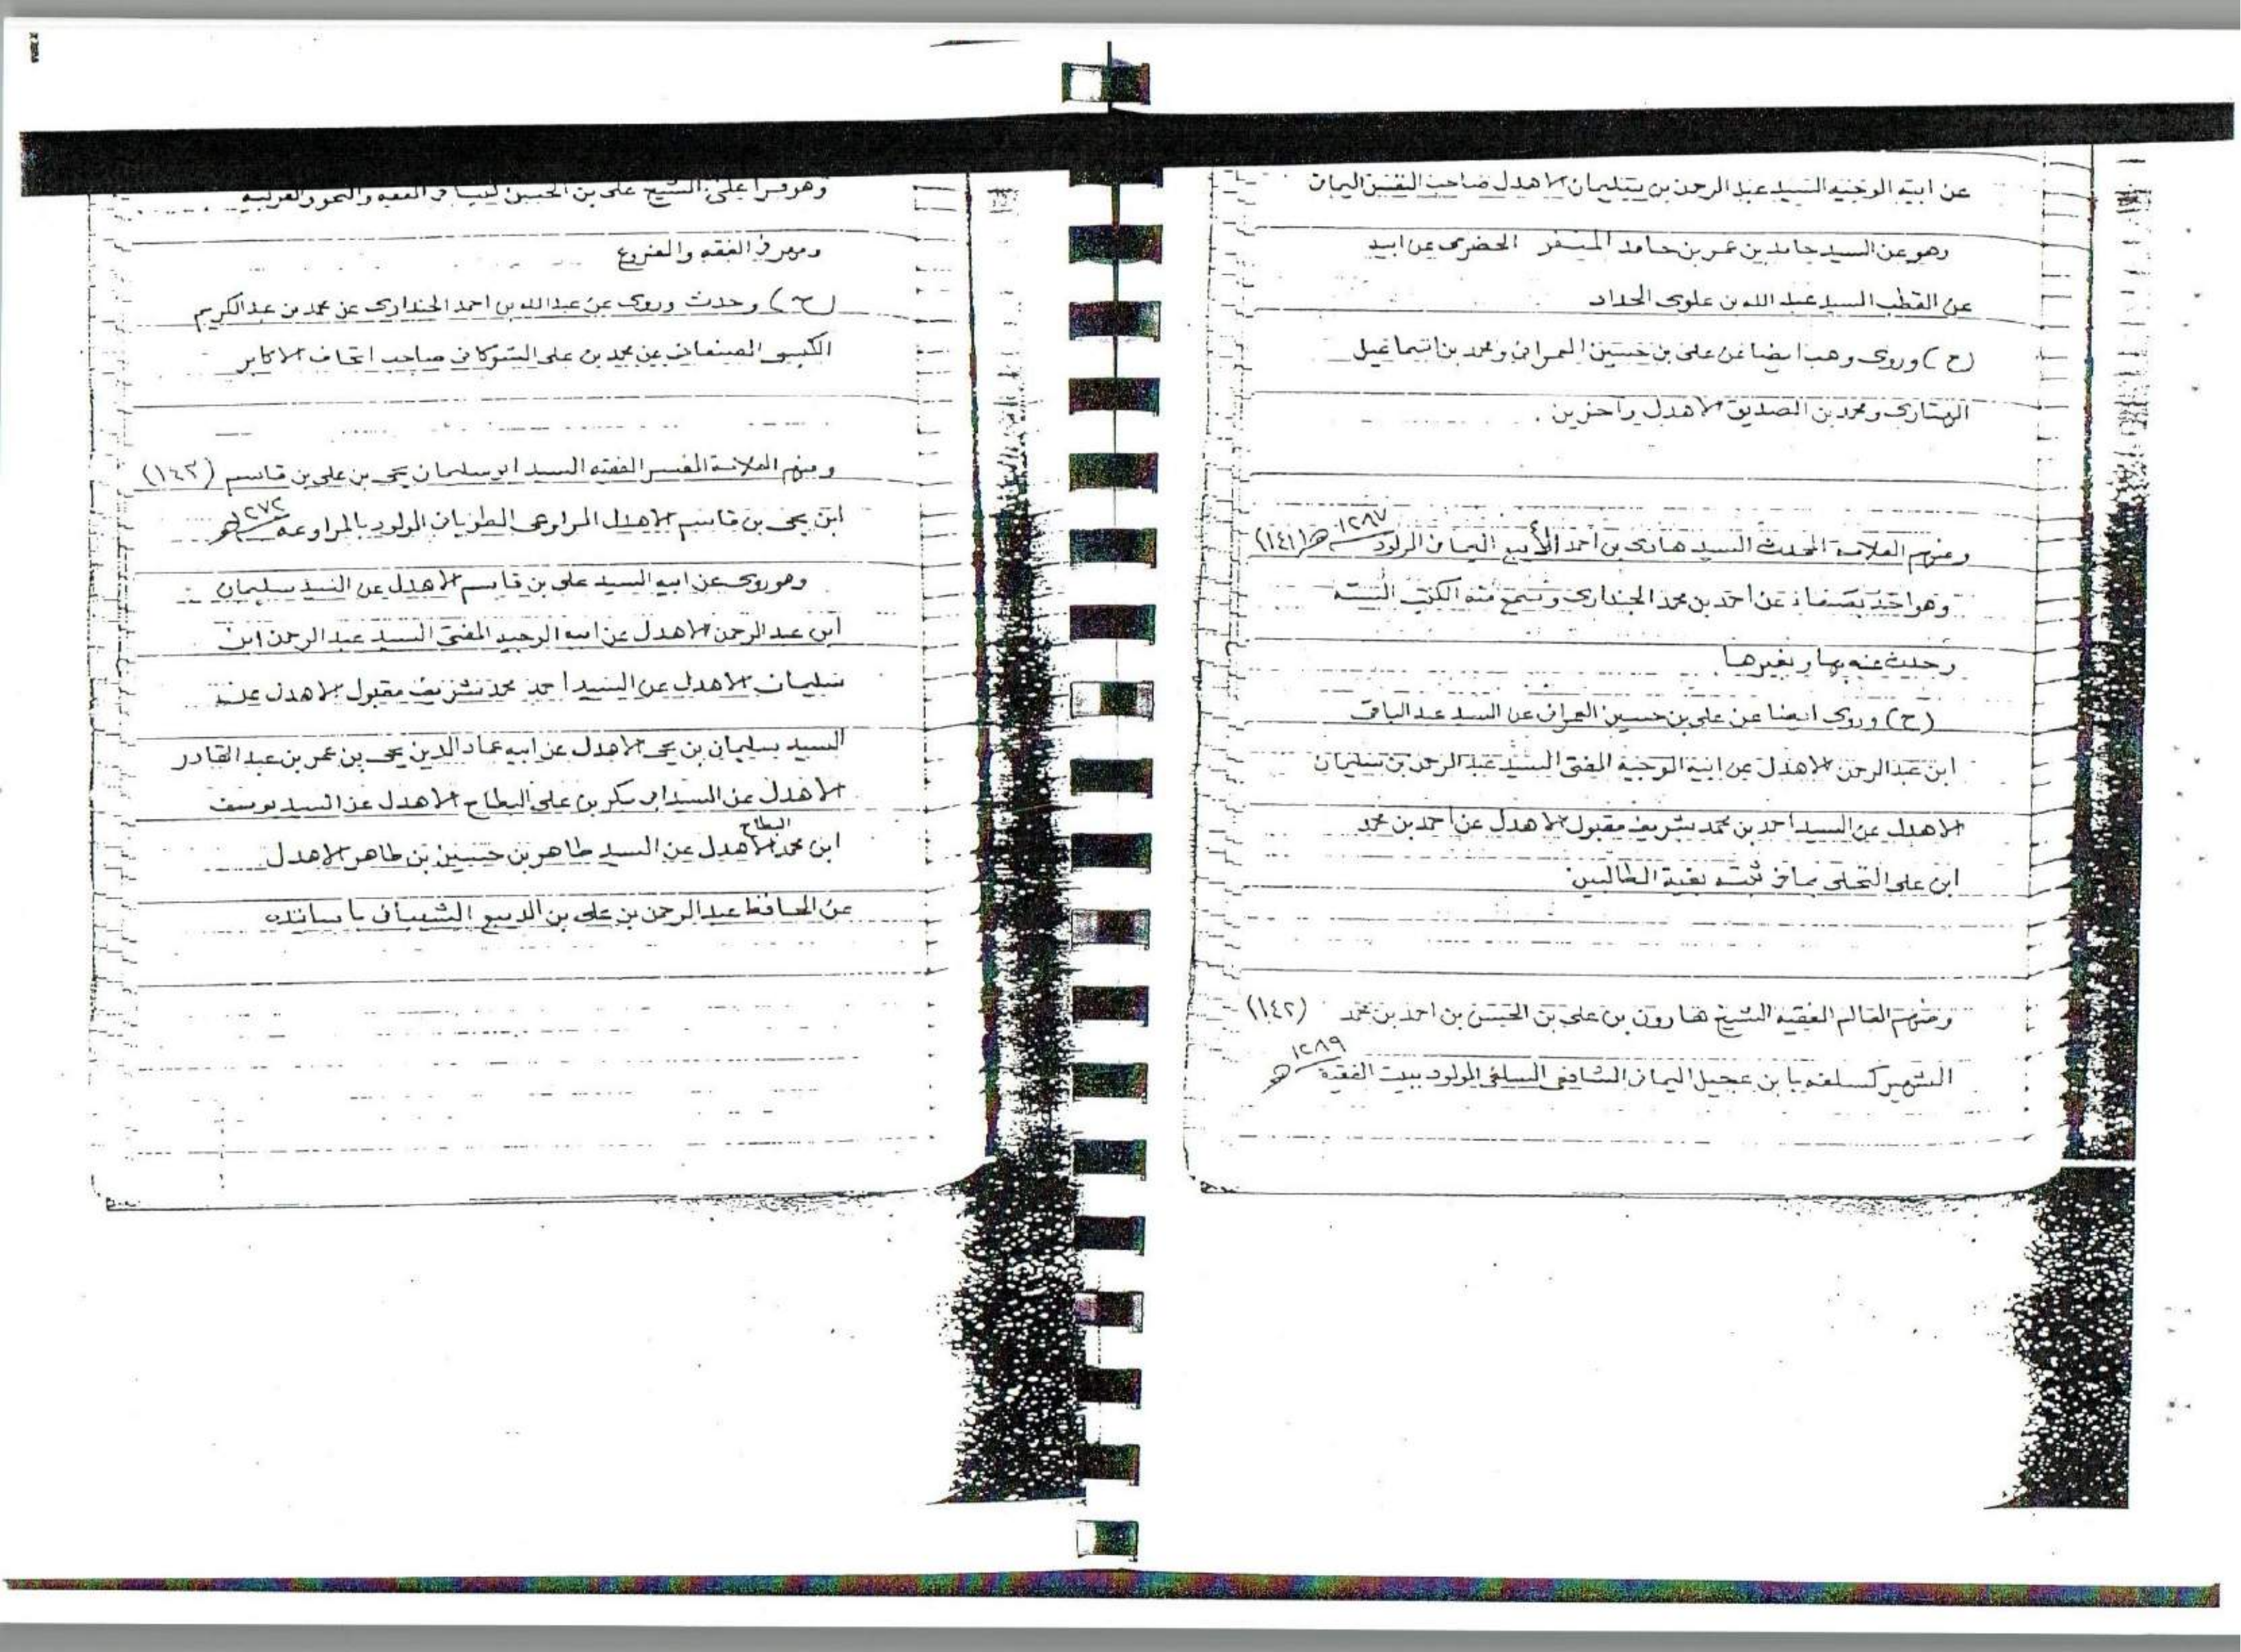 عن ابيه الوجيه السيد عبد الرحمن بن سليمان الاهدل صاحب النفس اليمان
وهو عن السيد حامد بن عمر بن حامد المنفر الحضرمى عن ابيه
عن القطب السيد عبد الله بن علوى الحداد
(ح) وروى وهب ايضا عن على بن حسين العمرانى ومحمد بن اسماعيل
الهتارى ومحمد بن الصديق الاهدل واخرين .
ومنهم العلامة المحدث السيد هادى بن احمد الأبيع اليمانى المولود ١٢٨٧ هـ (١٤١)
وهو اخذ بصنعاء عن احمد بن محمد الجندارى وسمع منه الكتب الستة
وحدث عنه بها وبغيرها
(ح) وروى ايضا عن على بن حسين العمرانى عن السيد عبد الباقى
ابن عبد الرحمن الاهدل عن ابيه الوجيه المفتى السيد عبد الرحمن بن سليمان
الاهدل عن السيد احمد بن محمد شريف مقبول الاهدل عن احمد بن محمد
ابن على النخلى بما فى ثبته بغية الطالبين
ومنهم العالم الفقيه الشيخ هارون بن على بن الحسن بن احمد بن محمد (١٤٢)
الشهير كسلفه بابن عجيل اليمانى الشافعى السلفى المولود ببيت الفقيه ١٢٨٩ هـ
وهو قرأ على الشيخ على بن الحسن فى الفقه والنحو والعربية
ومهر فى الفقه والفروع
(ح) وحدث وروى عن عبد الله بن احمد الجندارى عن محمد بن عبد الكريم
الكبسى الصنعانى عن محمد بن على الشوكانى صاحب اتحاف الاكابر
ومنهم العلامة المفسر الفقيه السيد ابو سليمان يحى بن على بن قاسم (١٤٣)
ابن يحى بن قاسم الاهدل المراوعى المولود بالمراوعه ١٢٧٢ هـ
وهو روى عن ابيه السيد على بن قاسم الاهدل عن السيد سليمان
ابن عبد الرحمن الاهدل عن ابيه الوجيه المفتى السيد عبد الرحمن ابن
سليمان الاهدل عن السيد احمد محمد شريف مقبول الاهدل عن
السيد سليمان بن يحى الاهدل عن ابيه عماد الدين يحى بن عمر بن عبد القادر
الاهدل عن السيد ابى بكر بن على البطاح الاهدل عن السيد يوسف
ابن محمد البطاح الاهدل عن السيد طاهر بن حسين بن طاهر الاهدل
عن الحافظ عبد الرحمن بن على بن الديبع الشيبانى باسانده